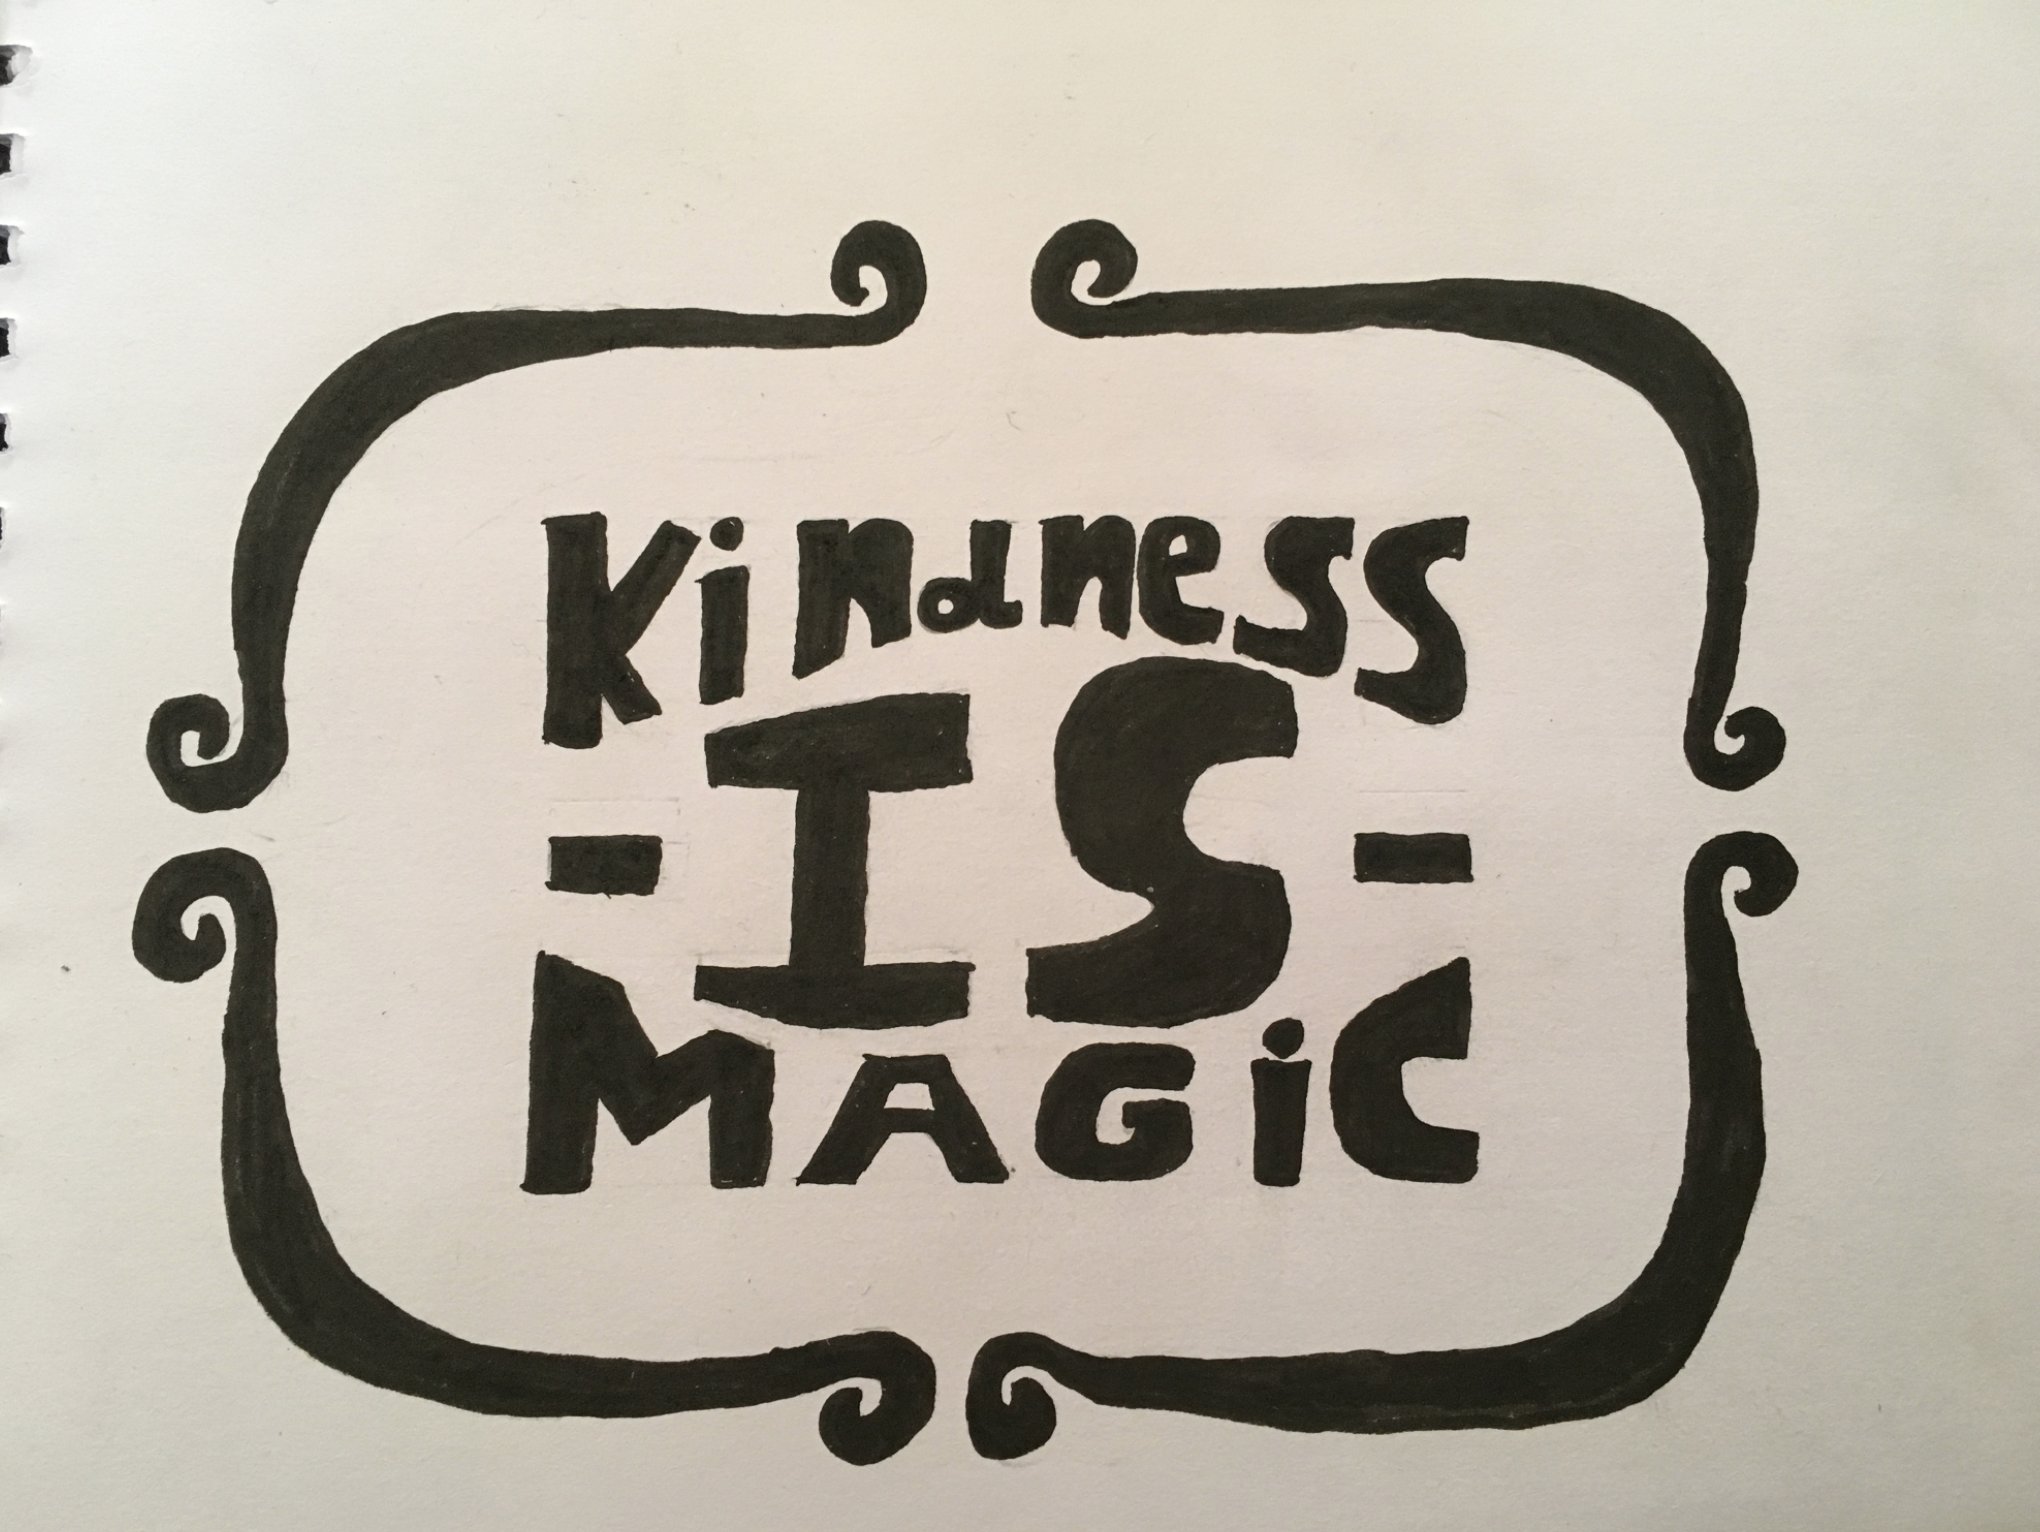 Kindness
- IS -
MAGiC